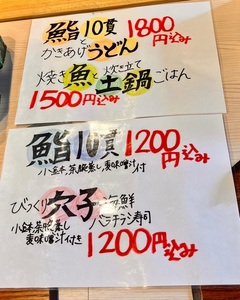 鮨10貫 1800円込み
と
かきあげうどん
焼き魚と炊き立て土鍋ごはん
1500円込み
鮨10貫 1200円込み
小鉢、茶碗蒸し、麦味噌汁付
びっくり穴子と海鮮
バラチラシ寿司
小鉢、茶碗蒸し
麦味噌汁付き
1200円込み